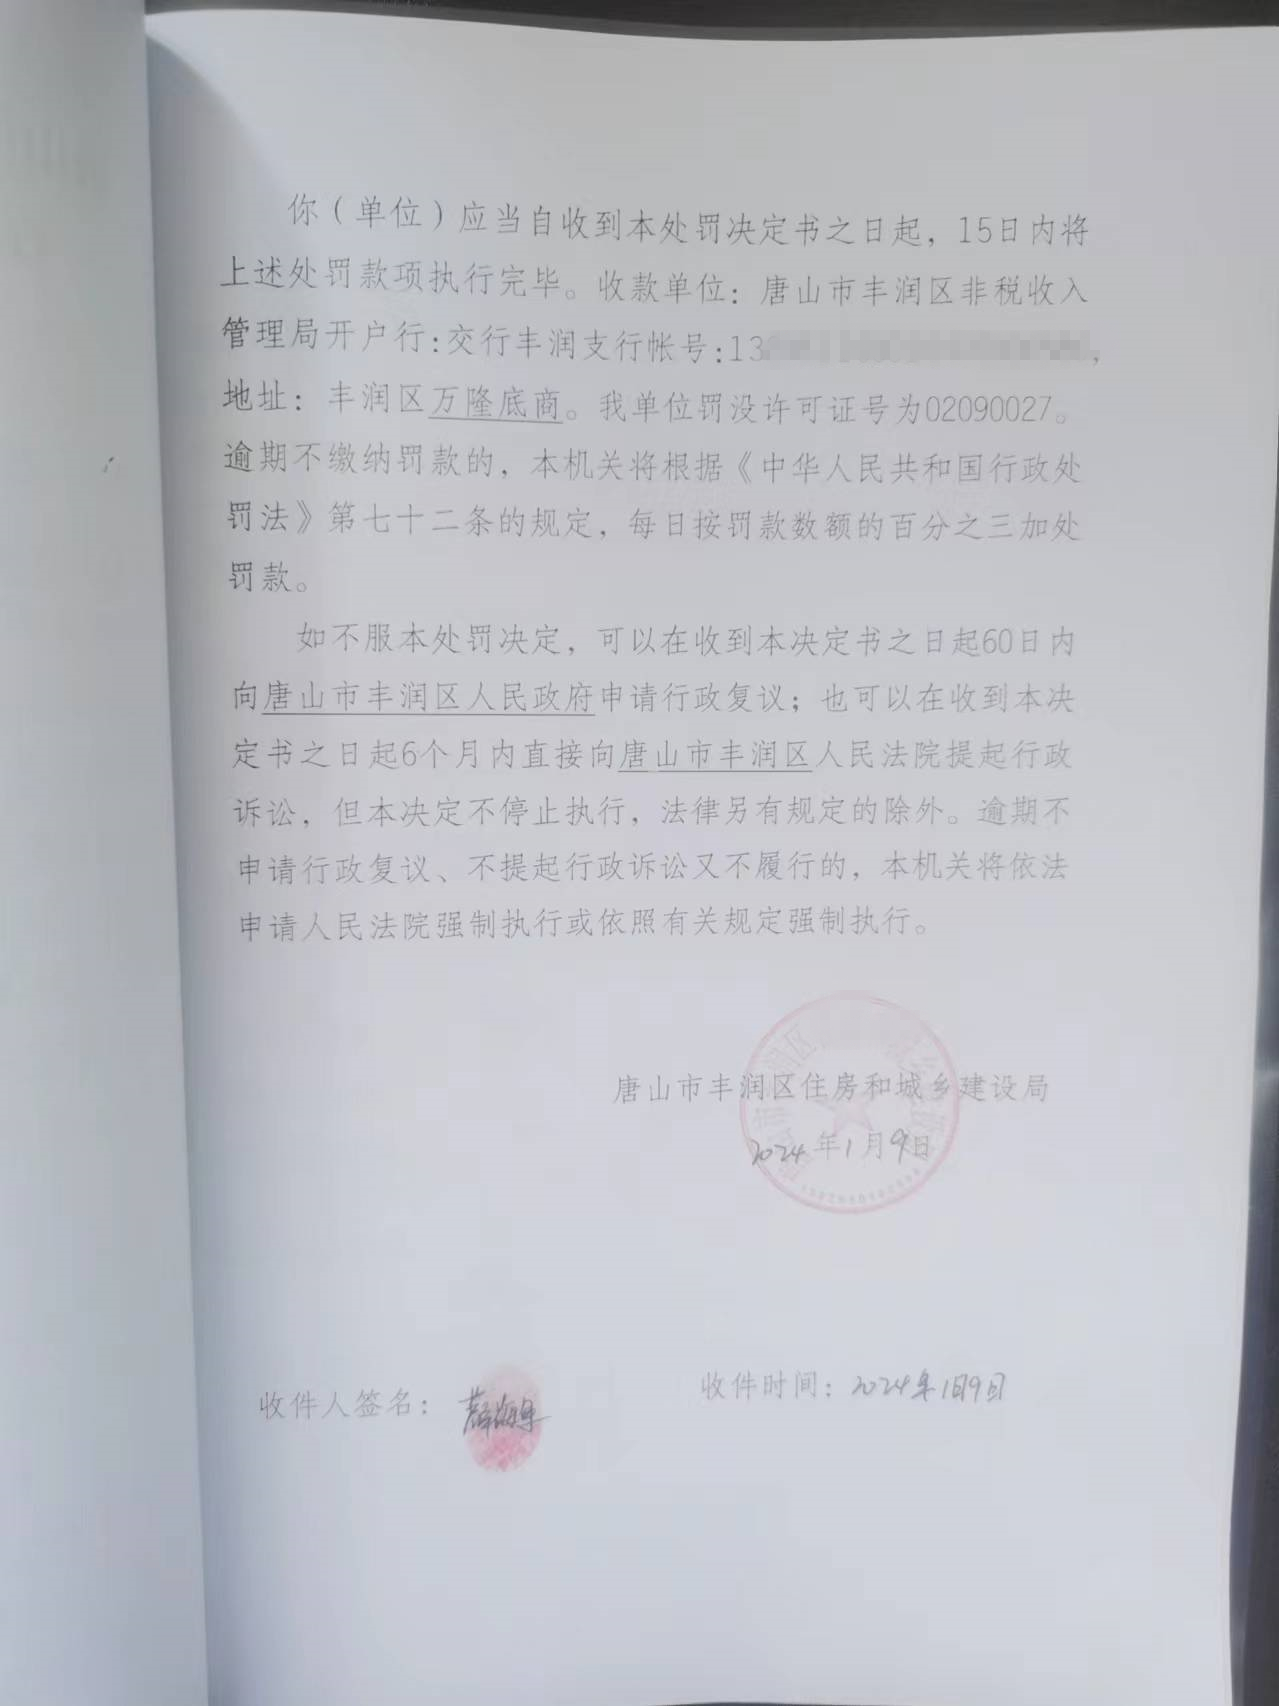 你（单位）应当自收到本处罚决定书之日起，15日内将
上述处罚款项执行完毕。收款单位：唐山市丰润区非税收入
管理局开户行:交行丰润支行帐号:13
地址：丰润区万隆底商。我单位罚没许可证号为02090027。
逾期不缴纳罚款的，本机关将根据《中华人民共和国行政处
罚法》第七十二条的规定，每日按罚款数额的百分之三加处
罚款。
如不服本处罚决定，可以在收到本决定书之日起60日内
向唐山市丰润区人民政府申请行政复议；也可以在收到本决
定书之日起6个月内直接向唐山市丰润区人民法院提起行政
诉讼，但本决定不停止执行，法律另有规定的除外。逾期不
申请行政复议、不提起行政诉讼又不履行的，本机关将依法
申请人民法院强制执行或依照有关规定强制执行。
唐山市丰润区住房和城乡建设局
2024年1月9日
收件人签名：
收件时间：2024年1月9日